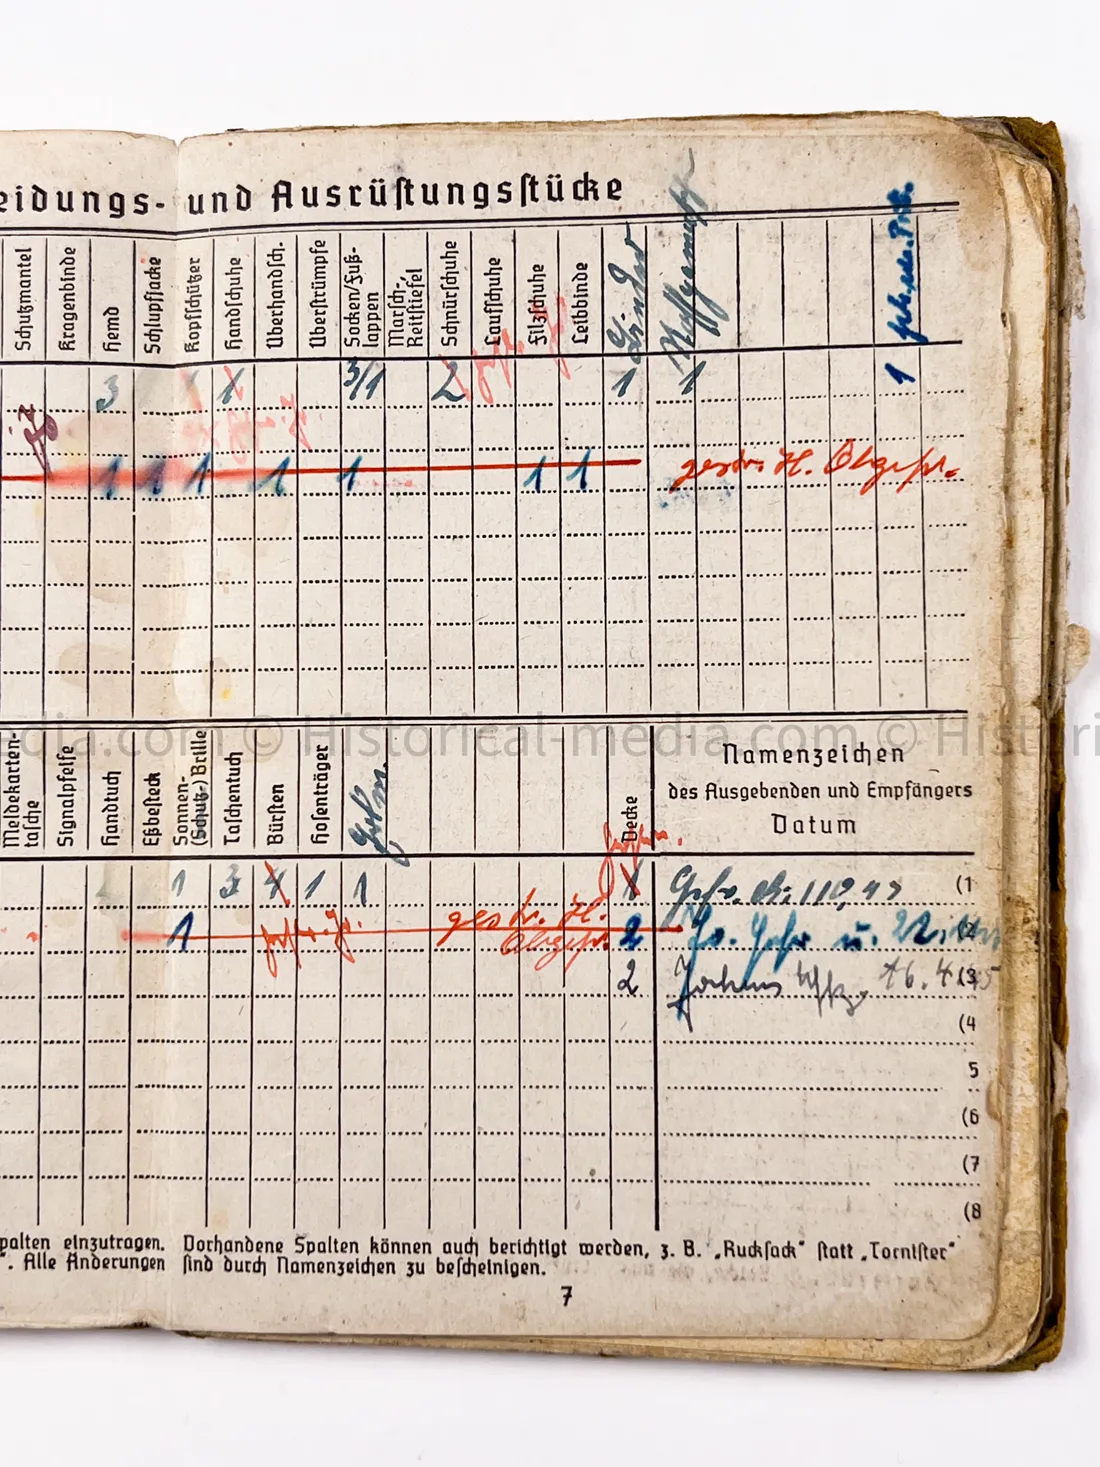 eidungs- und Ausrüstungsstücke
Schutzmantel
Kragenbinde
Hemd
Schlupfjacke
Kopfschützer
Handschuhe
Überhandsch.
Überstrümpfe
Socken/Fuß-
lappen
Marsch-,
Reitstiefel
Schnürschuhe
Laufschuhe
Filzschuhe
Leibbinde
3 1 3/1 2 1 1 1
1 1 1 1 1 1 1 gestr. lt. Abgepr.
dia.com © Historical-media.com © Histori
Meldekarten-
tasche
Signalpfeife
Handtuch
Eßbesteck
Sonnen-
(Schutz-) Brille
Taschentuch
Bürsten
Hosenträger
Decke
Namenzeichen
des Ausgebenden und Empfängers
Datum
1 3 4 1 1 1 (1
1 gestr. lt. 2
2 16.4.45 (3
(4
5
(6
(7
(8
palten einzutragen. Vorhandene Spalten können auch berichtigt werden, z. B. „Rucksack" statt „Tornister"
". Alle Änderungen sind durch Namenzeichen zu bescheinigen.
7